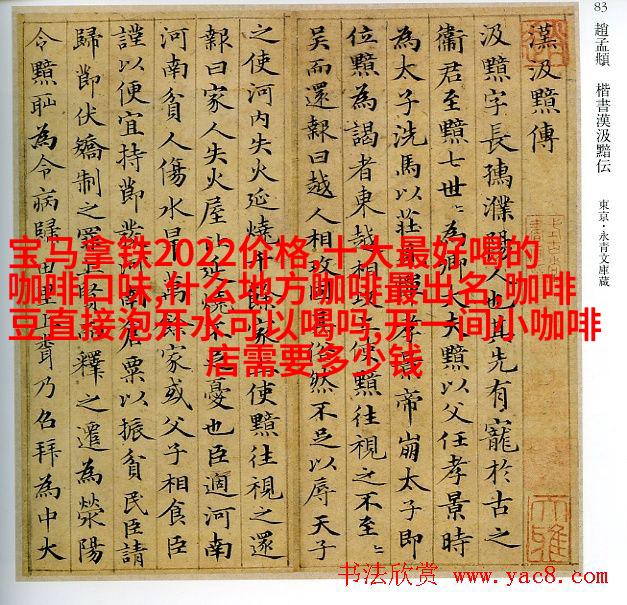 83
趙孟頫 楷書漢汲黯伝 東京・永青文庫蔵
漢汲黯傳
汲黯字長孺濮陽人也其先有寵於古之
衞君至黯七世〻為卿大夫黯以父任孝景時
為太子洗馬以莊見憚孝景帝崩太子即
位黯為謁者東越相攻上使黯往視之不至〻
吳而還報曰越人相攻固其俗然不足以辱天子
之使河內失火延燒千餘家上使黯往視之還
報曰家人失火屋比延燒不足憂也臣過河南
河南貧人傷水旱萬餘家或父子相食臣
謹以便宜持節發河南倉粟以振貧民臣請
歸節伏矯制之罪上賢而釋之遷為滎陽
令黯恥為令病歸田里上聞乃召拜為中大
宝马拿铁2022价格,十大最好喝的
咖啡口味,什么地方咖啡最出名,咖啡
豆直接泡开水可以喝吗,开一间小咖啡
店需要多少钱
书法欣赏 www.yac8.com